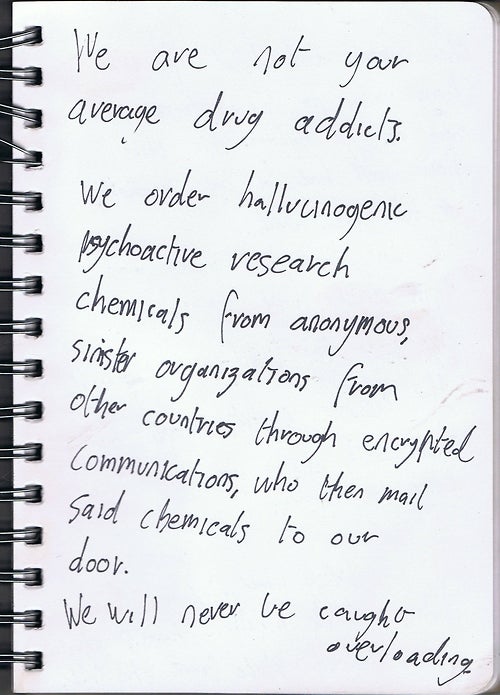 We are not your
average drug addicts.
We order hallucinogenic
psychoactive research
chemicals from anonymous,
sinister organizations from
other countries through encrypted
communications, who then mail
said chemicals to our
door.
We will never be caught
overloading